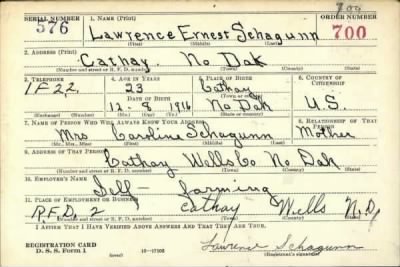 700
SERIAL NUMBER 1. NAME (Print) ORDER NUMBER
576 Lawrence Ernest Schagunn 700
(First) (Middle) (Last)
2. ADDRESS (Print)
Cathay. No Dak
(Number and street or R. F. D. number) (Town) (County) (State)
3. TELEPHONE 4. AGE IN YEARS 5. PLACE OF BIRTH 6. COUNTRY OF CITIZENSHIP
1F22 23 Cathay
DATE OF BIRTH (Town or county)
12 - 8 1916 No Dak U.S.
(Exchange) (Number) (Mo.) (Day) (Yr.) (State or country)
7. NAME OF PERSON WHO WILL ALWAYS KNOW YOUR ADDRESS 8. RELATIONSHIP OF THAT PERSON
Mrs Caroline Schagunn Mother
(Mr., Mrs., Miss) (First) (Middle) (Last)
9. ADDRESS OF THAT PERSON
Cathay Wells Co No Dak
(Number and street or R. F. D. number) (Town) (County) (State)
10. EMPLOYER'S NAME
Self - farming
11. PLACE OF EMPLOYMENT OR BUSINESS
R.F.D. 2 Cathay Wells N.D.
(Number and street or R. F. D. number) (Town) (County) (State)
I AFFIRM THAT I HAVE VERIFIED ABOVE ANSWERS AND THAT THEY ARE TRUE.
REGISTRATION CARD
D. S. S. Form 1 (over) 16-17105 Lawrence Schagunn